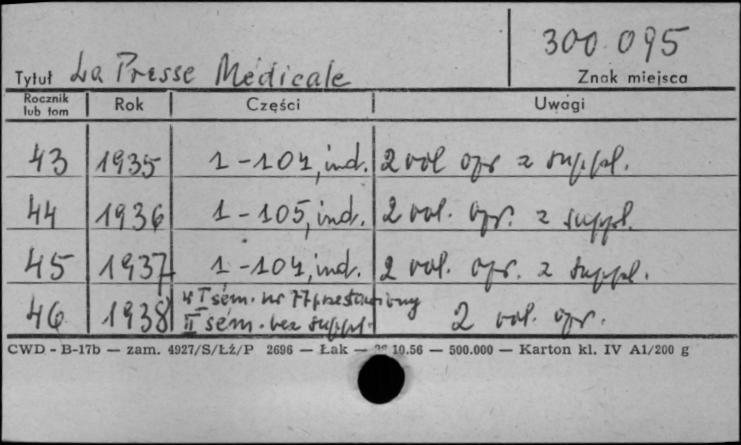 300.095
Tytuł La Presse Médicale Znak miejsca
Rocznik lub tom Rok Części Uwagi
43 1935 1-104, ind. 2 vol opr z suppl.
44 1936 1-105, ind. 2 vol. opr. z suppl.
45 1937 1-104, ind. 2 vol. opr. z suppl.
46 1938 w I sem. nr 77 przestawiony
II sem. bez suppl. 2 vol. opr.
CWD - B-17b — zam. 4927/S/Łź/P 2696 — Łak — 10.56 — 500.000 — Karton kl. IV A1/200 g